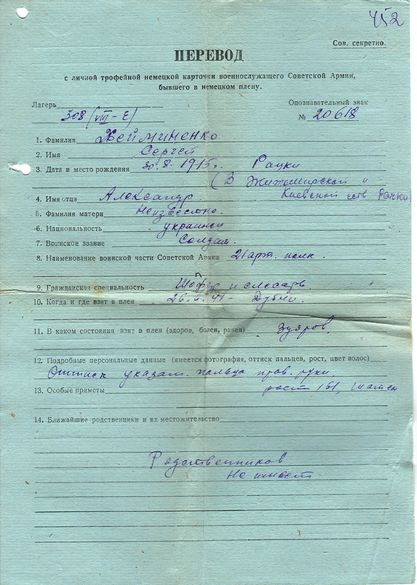 452
Сов. секретно.
ПЕРЕВОД
с личной трофейной немецкой карточки военнослужащего Советской Армии,
бывшего в немецком плену.
Лагерь 308 (VIII-E) Опознавательный знак
№ 20618
1. Фамилия Хейминенко
2. Имя Сергей
3. Дата и место рождения 30.8.1915г. Рачки
(В Житомирской и
4. Имя отца Александр Киевской Рачки)
5. Фамилия матери Неизвестно
6. Национальность украинец
7. Воинское звание Солдат
8. Наименование воинской части Советской Армии 21 арт. полк
9. Гражданская специальность Шофер и слесарь
10. Когда и где взят в плен 26. 41 - Дубно
11. В каком состоянии взят в плен (здоров, болен, ранен) Здоров
12. Подробные персональные данные (имеется фотография, оттиск пальцев, рост, цвет волос)
Оттиск указат. пальца прав. руки
13. Особые приметы рост 161, шатен
14. Ближайшие родственники и их местожительство
Родственников
не имеет